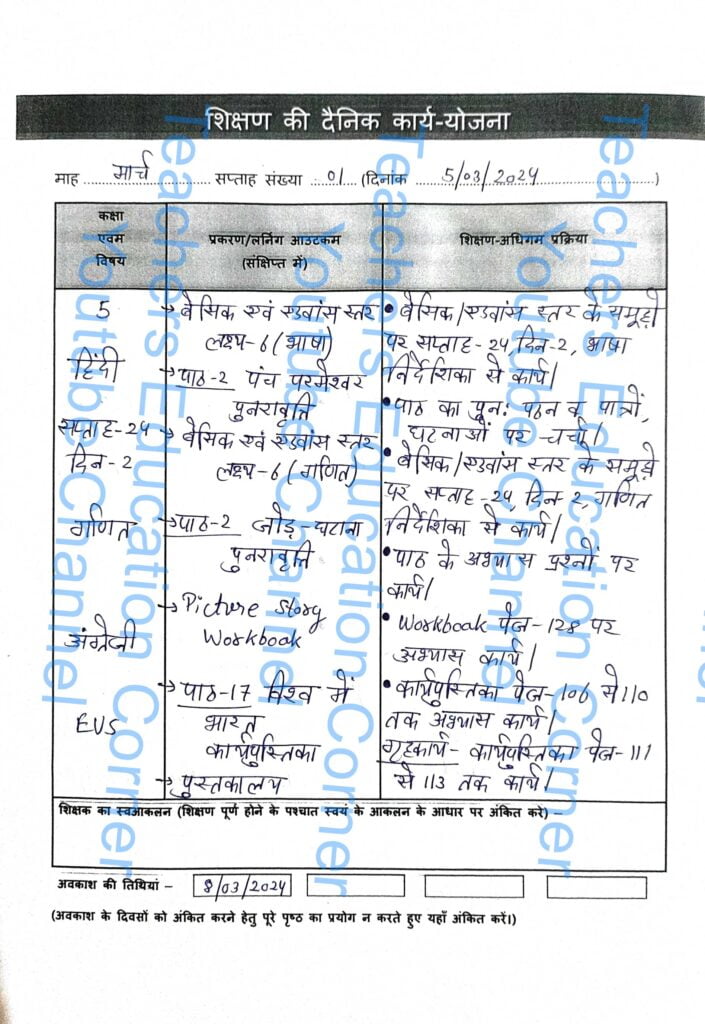 शिक्षण की दैनिक कार्य-योजना
माह मार्च सप्ताह संख्या 01 (दिनांक 5/03/2024)
कक्षा
एवम
विषय
प्रकरण/लर्निंग आउटकम
(संक्षिप्त में)
शिक्षण-अधिगम प्रक्रिया
5
हिंदी
सप्ताह-24
दिन-2
गणित
अंग्रेजी
EVS
→ बेसिक एवं एडवांस स्तर
लक्ष्य-6 (भाषा)
→ पाठ-2 पंच परमेश्वर
पुनरावृत्ति
→ बेसिक एवं एडवांस स्तर
लक्ष्य-6 (गणित)
→ पाठ-2 जोड़-घटाना
पुनरावृत्ति
→ Picture Story
Workbook
→ पाठ-17 विश्व में
भारत
कार्यपुस्तिका
→ पुस्तकालय
• बेसिक/एडवांस स्तर के समूहों
पर सप्ताह-24, दिन-2, भाषा
निर्देशिका से कार्य।
• पाठ का पुन: पठन व पात्रों,
घटनाओं पर चर्चा।
• बेसिक/एडवांस स्तर के समूहों
पर सप्ताह-24, दिन-2, गणित
निर्देशिका से कार्य।
• पाठ के अभ्यास प्रश्नों पर
कार्य।
• Workbook पेज-128 पर
अभ्यास कार्य।
• कार्यपुस्तिका पेज-106 से 110
तक अभ्यास कार्य।
गृहकार्य- कार्यपुस्तिका पेज-111
से 113 तक कार्य।
शिक्षक का स्वआकलन (शिक्षण पूर्ण होने के पश्चात स्वयं के आकलन के आधार पर अंकित करे) –
अवकाश की तिथियां – 8/03/2024
(अवकाश के दिवसों को अंकित करने हेतु पूरे पृष्ठ का प्रयोग न करते हुए यहाँ अंकित करें।)
Teachers Education Corner
Youtube Channel
Teachers Education Corner
Youtube Channel
Teachers Education Corner